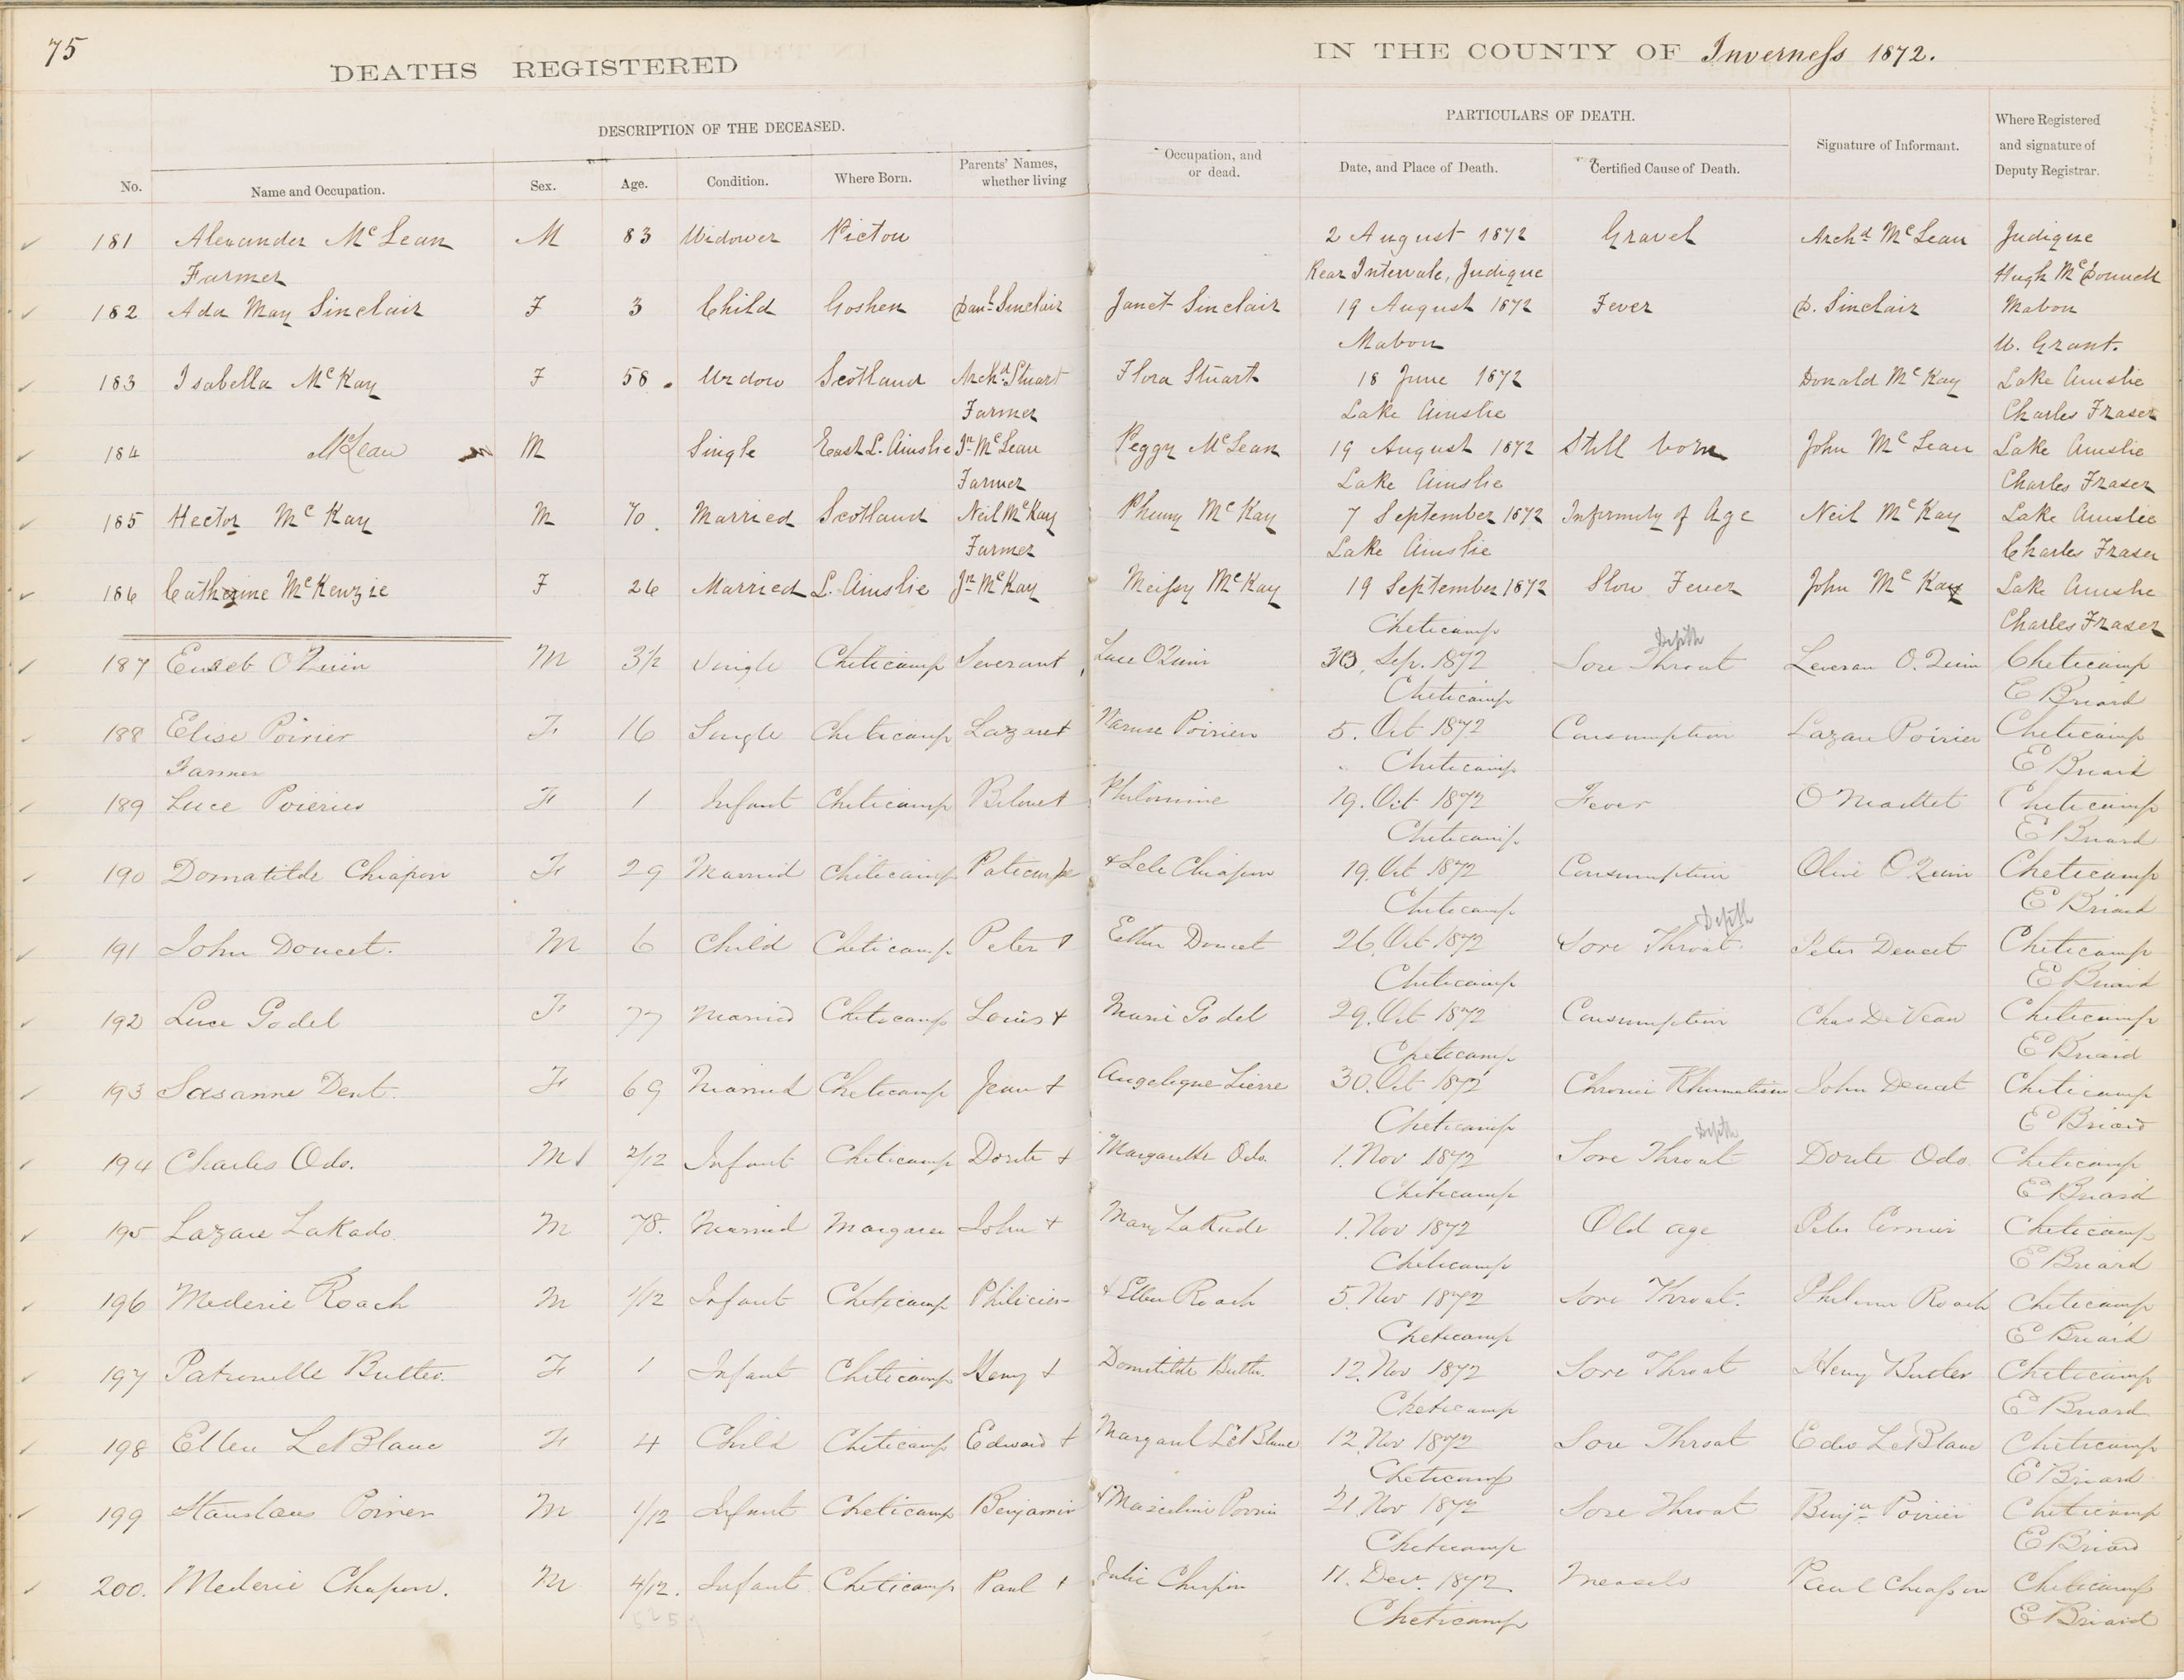 75
DEATHS REGISTERED IN THE COUNTY OF Inverness 1872.
DESCRIPTION OF THE DECEASED. PARTICULARS OF DEATH.
No. Name and Occupation. Sex. Age. Condition. Where Born. Parents' Names, whether living Occupation, and or dead. Date, and Place of Death. Certified Cause of Death. Signature of Informant. Where Registered and signature of Deputy Registrar.
181 Alexander McLean M 83 Widower Pictou 2 August 1872 Gravel Archd McLean Judique
Farmer Rear Intervale, Judique Hugh McDonnell
182 Ada May Sinclair F 3 Child Goshen Danl Sinclair Janet Sinclair 19 August 1872 Fever D. Sinclair Mabou
Mabou W. Grant.
183 Isabella McKay F 58. Widow Scotland Archd Stuart Flora Stuart 18 June 1872 Donald McKay Lake Ainslie
Farmer Lake Ainslie Charles Fraser
184 McLean M Single East L. Ainslie Jn McLean Peggy McLean 19 August 1872 Still born John McLean Lake Ainslie
Farmer Lake Ainslie Charles Fraser
185 Hector McKay M 70. Married Scotland Neil McKay Phemy McKay 7 September 1872 Infirmity of Age Neil McKay Lake Ainslie
Farmer Lake Ainslie Charles Fraser
186 Catherine McKenzie F 26 Married L. Ainslie Jn McKay 19 September 1872 Slow Fever John McKay Lake Ainslie
Cheticamp Charles Fraser
Dipth
187 O'Quin M 3½ Single Cheticamp Luce O'Quin 30, Sep. 1872 Sore Throat O.Quin Cheticamp
Cheticamp E Briard
188 Elise Poirier F 16 Single Cheticamp 5. Oct 1872 Consumption Lazare Poirier Cheticamp
Farmer Cheticamp E Briard
189 Luce F 1 Infant Cheticamp Philomine 19. Oct 1872 Fever Cheticamp
Cheticamp E Briard
190 Domatilde Chiapon F 29 Married Cheticamp + Lele Chiapon 19. Oct 1872 Consumption O'Quin Cheticamp
Cheticamp E Briard
Dipth
191 John Doucet. M 6 Child Cheticamp Peter + Doucet 26, Oct 1872 Sore Throat. Peter Doucet Cheticamp
Cheticamp E Briard
192 Luce Godel F 77 Married Cheticamp Louis + Marie Godel 29. Oct 1872 Consumption Chas DeVeau Cheticamp
Cheticamp E Briard
193 Sasanne F 69 Married Cheticamp Jean + Angelique 30. Oct 1872 Chronic Rhumatism John Cheticamp
Cheticamp E Briard
Dipth
194 Charles Odo. M 2/12 Infant Cheticamp Dorite + Margarette Odo. 1. Nov 1872 Sore Throat Dorite Odo Cheticamp
Cheticamp E Briard
195 Lazare LaKado M 78. Married Margaree John + Mary 1. Nov 1872 Old age Peter Cheticamp
Cheticamp E Briard
196 Mederie Roach M 1/12 Infant Cheticamp + Ellen Roach 5. Nov 1872 Sore Throat. Roach Cheticamp
Cheticamp E Briard
197 Patronelle Butler F 1 Infant Cheticamp Henry + Domitilde Butler. 12. Nov 1872 Sore Throat Henry Butler Cheticamp
Cheticamp E Briard
198 Ellen LeBlanc F 4 Child Cheticamp Edward + Margaret LeBlanc 12. Nov 1872 Sore Throat Edwd LeBlanc Cheticamp
Cheticamp E Briard
199 Stanslaus Poirier M 1/12 Infant Cheticamp Benjamin 21. Nov 1872 Sore Throat Benjn Poirier Cheticamp
Cheticamp E Briard
200. Mederie M 4/12. Infant Cheticamp Paul + Julie 11. Dec. 1872. Measels Paul Cheticamp
Cheticamp E Briard